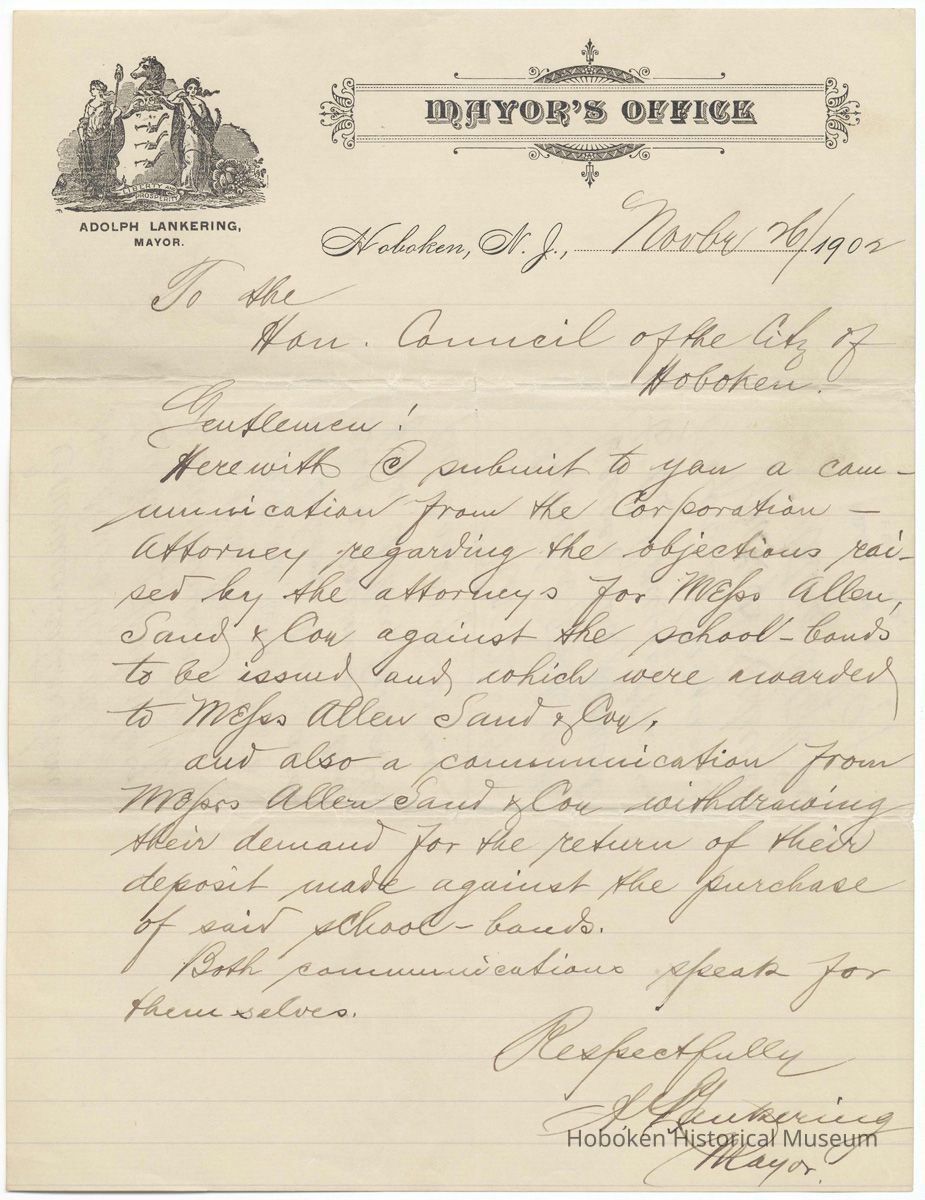 MAYOR'S OFFICE
LIBERTY AND
PROSPERITY
ADOLPH LANKERING,
MAYOR.
Hoboken, N. J., Novbr 26/1902
To the
Hon. Council of the City of
Hoboken.
Gentlemen!
Herewith I submit to you a com-
munication from the Corporation -
Attorney regarding the objections rai-
sed by the attorneys for Mess Allen,
Sand & Coy against the school-bonds
to be issued and which were awarded
to Mess Allen Sand & Coy.
and also a communication from
Messrs Allen Sand & Coy withdrawing
their demand for the return of their
deposit made against the purchase
of said school-bonds.
Both communications speak for
themselves.
Respectfully
A Lankering
Mayor.
Hoboken Historical Museum